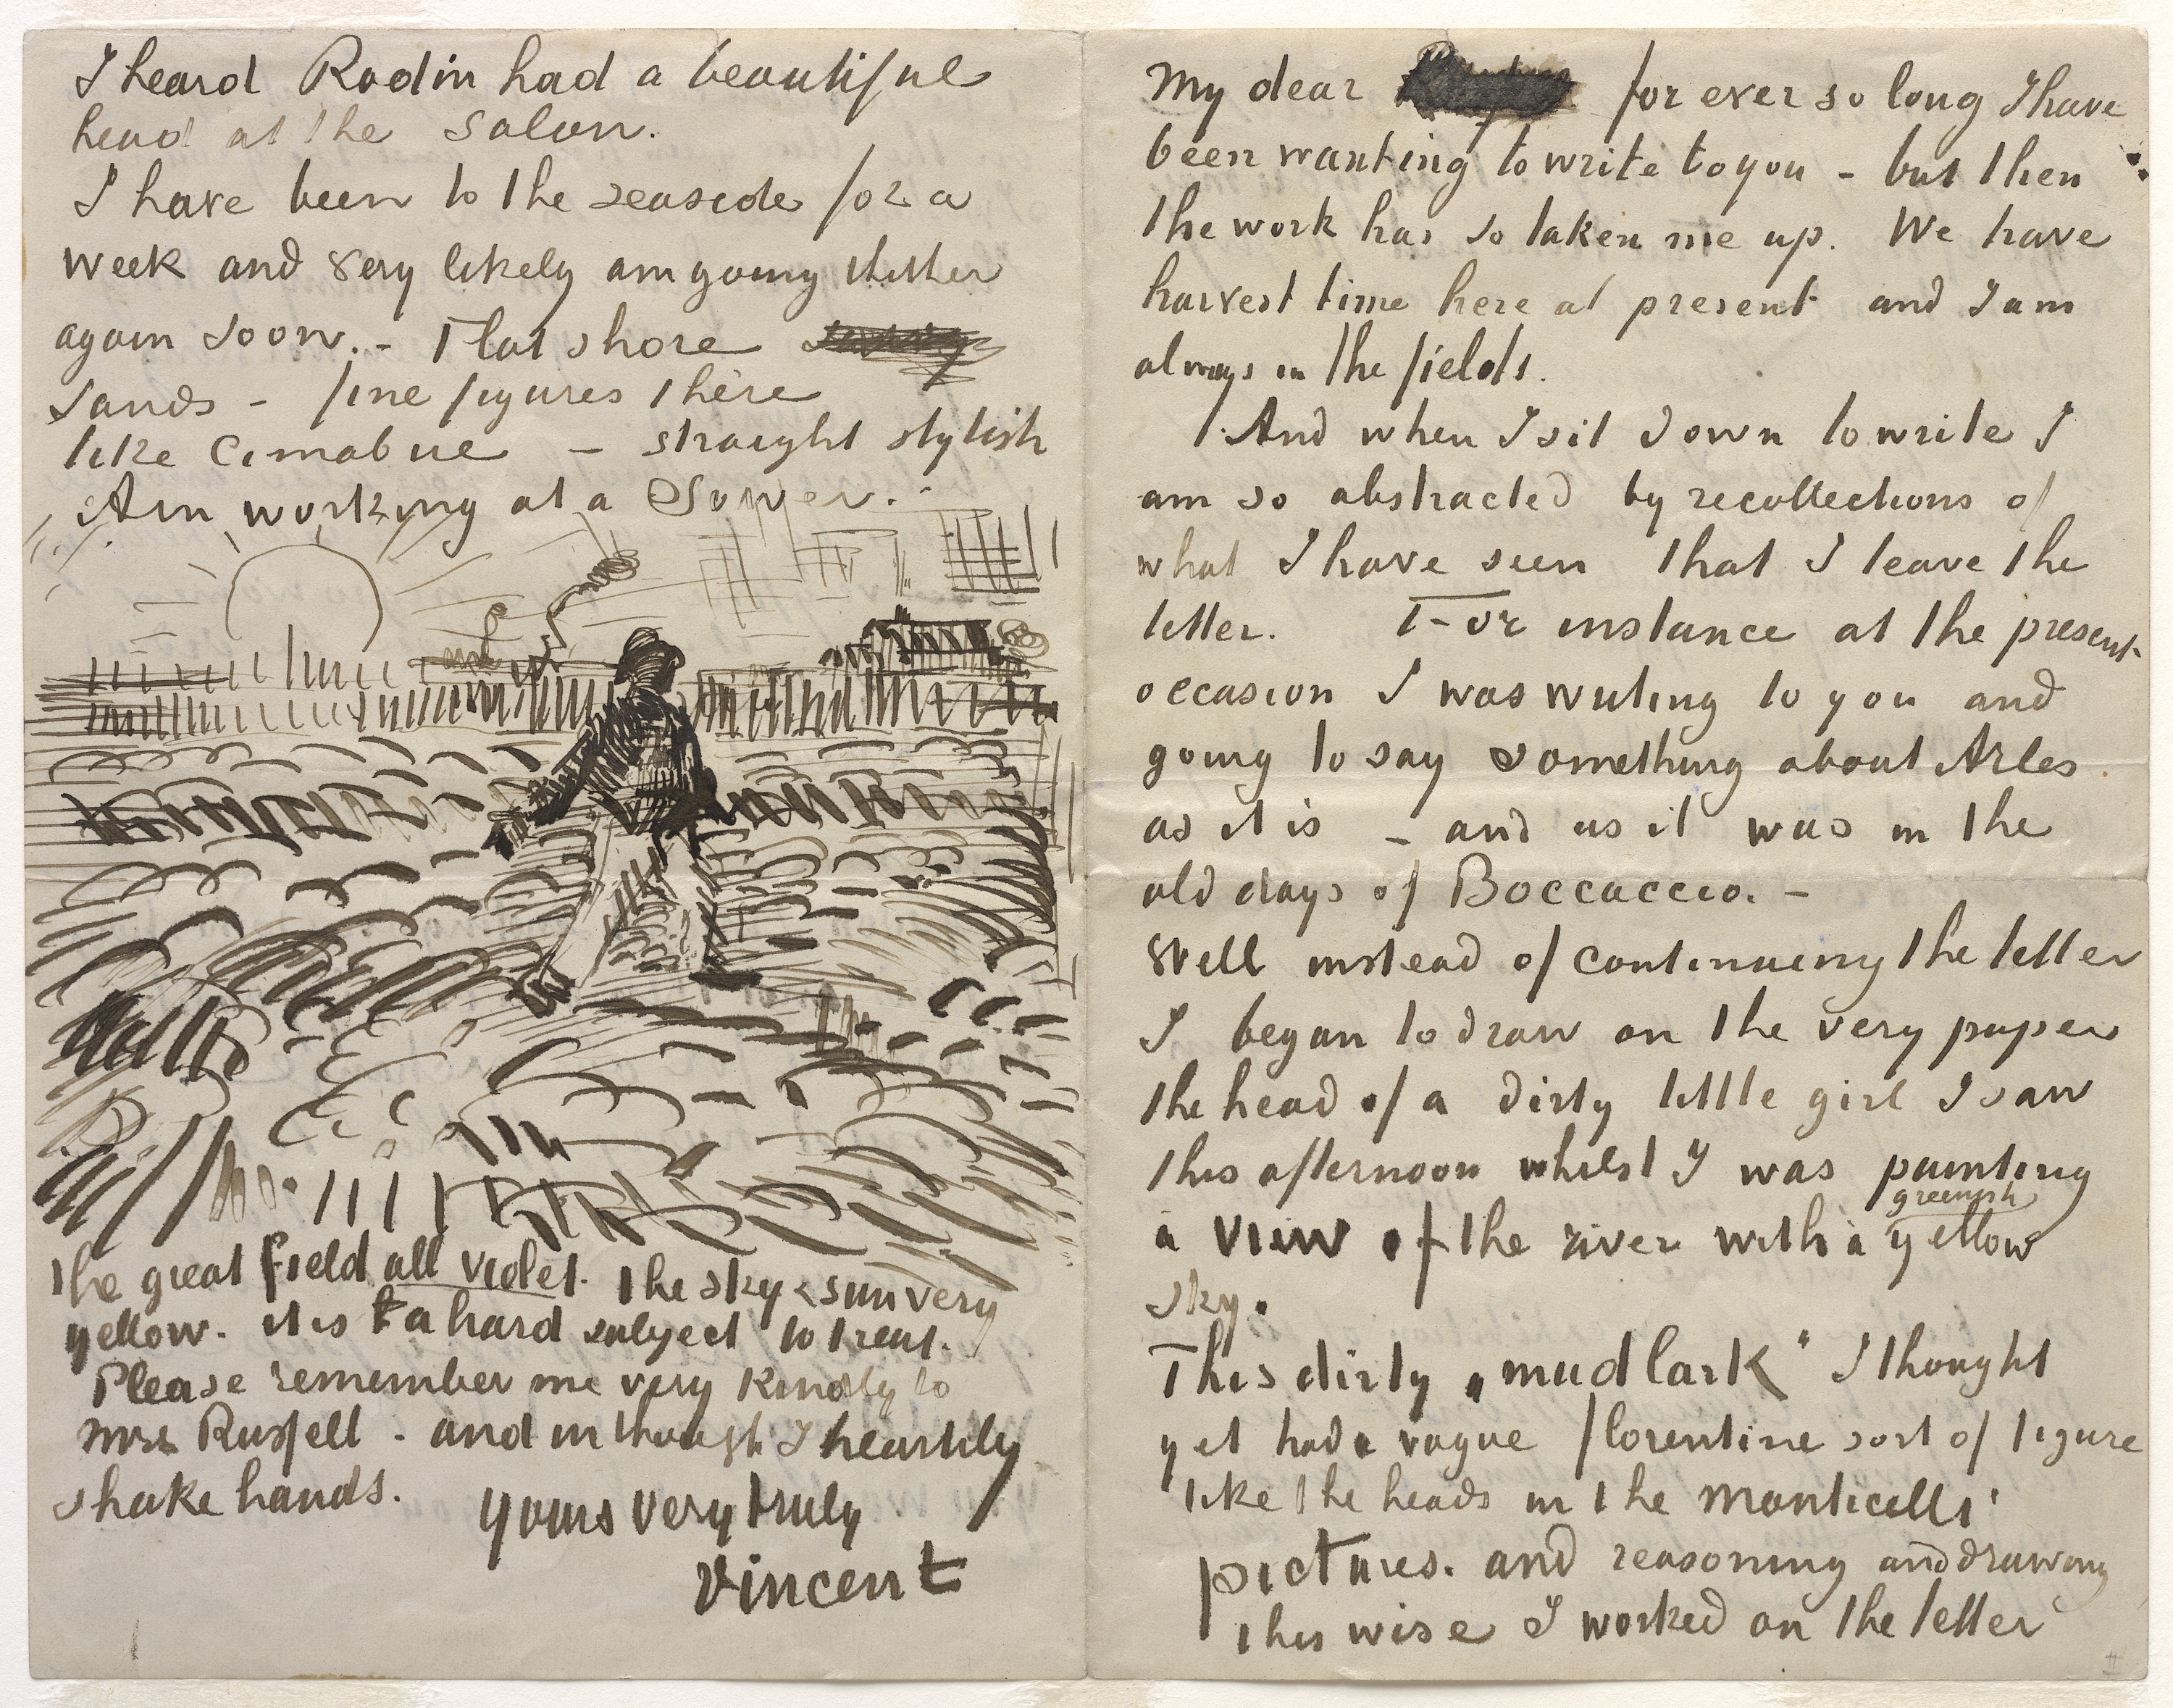 My dear for ever so long I have
been wanting to write to you - but then
the work has so taken me up. We have
harvest time here at present and I am
always in the fields.
And when I sit down to write I
am so abstracted by recollections of
what I have seen that I leave the
letter. For instance at the present
occasion I was writing to you and
going to say something about Arles
as it is - and as it was in the
old days of Boccaccio. -
Well instead of continuing the letter
I began to draw on the very paper
the head of a dirty little girl I saw
this afternoon whilst I was painting
a view of the river with a greenish yellow
sky.
This dirty „mudlark" I thought
yet had a vague florentine sort of figure
like the heads in the Monticelli
pictures. and reasoning and drawing
this wise I worked on the letter
I heard Rodin had a beautiful
head at the Salon.
I have been to the seaside for a
week and very likely am going thither
again soon. - Flat shore
sands - fine figures there
like Cimabue - straight stylish
Am working at a Sower.
the great field all violet. the sky & sun very
yellow. it is a hard subject to treat.
Please remember me very kindly to
Mrs Russell - and in thought I heartily
shake hands.
yours very truly
Vincent